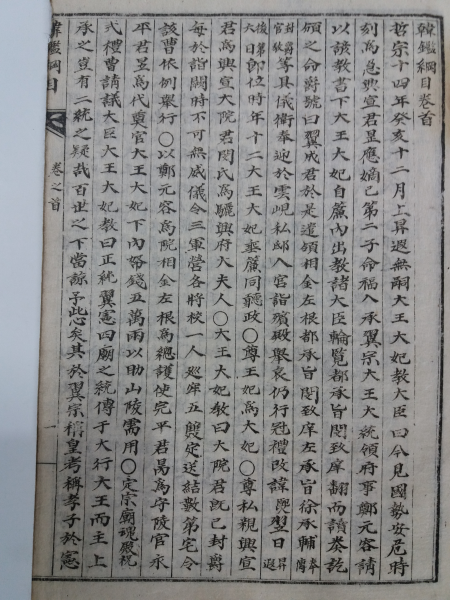 韓鑑綱目卷首
哲宗十四年癸亥十二月上昇遐無嗣大王大妃教大臣曰今見國勢安危時
刻爲急興宣君昰應嫡己第二子命福入承翼宗大王大統領府事鄭元容請
以諺教書下大王大妃自簾內出教諸大臣輪覽都承旨閔致庠翻而讀奏訖
頒之命爵號曰翼成君於是遣領相金左根都承旨閔致庠左承旨徐承輔奉傳
封爵官教等具儀衛奉迎於雲峴私邸入宮詣殯殿擧哀仍行冠禮改諱 翌日昇遐
後第日卽位時年十二大王大妃垂簾同聽政○尊王妃爲大妃○尊私親興宣
君爲興宣大院君閔氏爲驪興府大夫人○大王大妃教曰大院君旣已封爵
每於詣闕時不可無威儀令三軍營各將校一人巡牢五雙定送結數第宅令
該曹依例擧行○以鄭元容爲院相金左根爲總護使完平君昺爲守陵官永
平君昱爲代奠官大王大妃下內帑錢五萬兩以助山陵需用○定宗廟魂殿祝
式禮曹請議大臣大王大妃教曰正統翼憲四廟之統傳于大行大王而主上
承之豈有二統之疑哉百世之下當諒予此心矣其於翼宗稱皇考稱孝子於憲
韓鑑綱目 卷之首 一